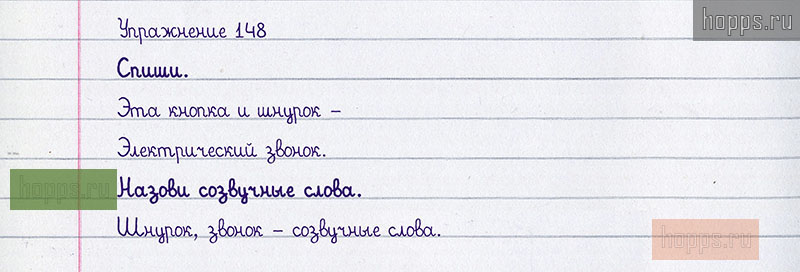 hopps.ru
Упражнение 148
Спиши.
Эта кнопка и шнурок –
Электрический звонок.
hopps.ru
Назови созвучные слова.
Шнурок, звонок – созвучные слова.
hopps.ru